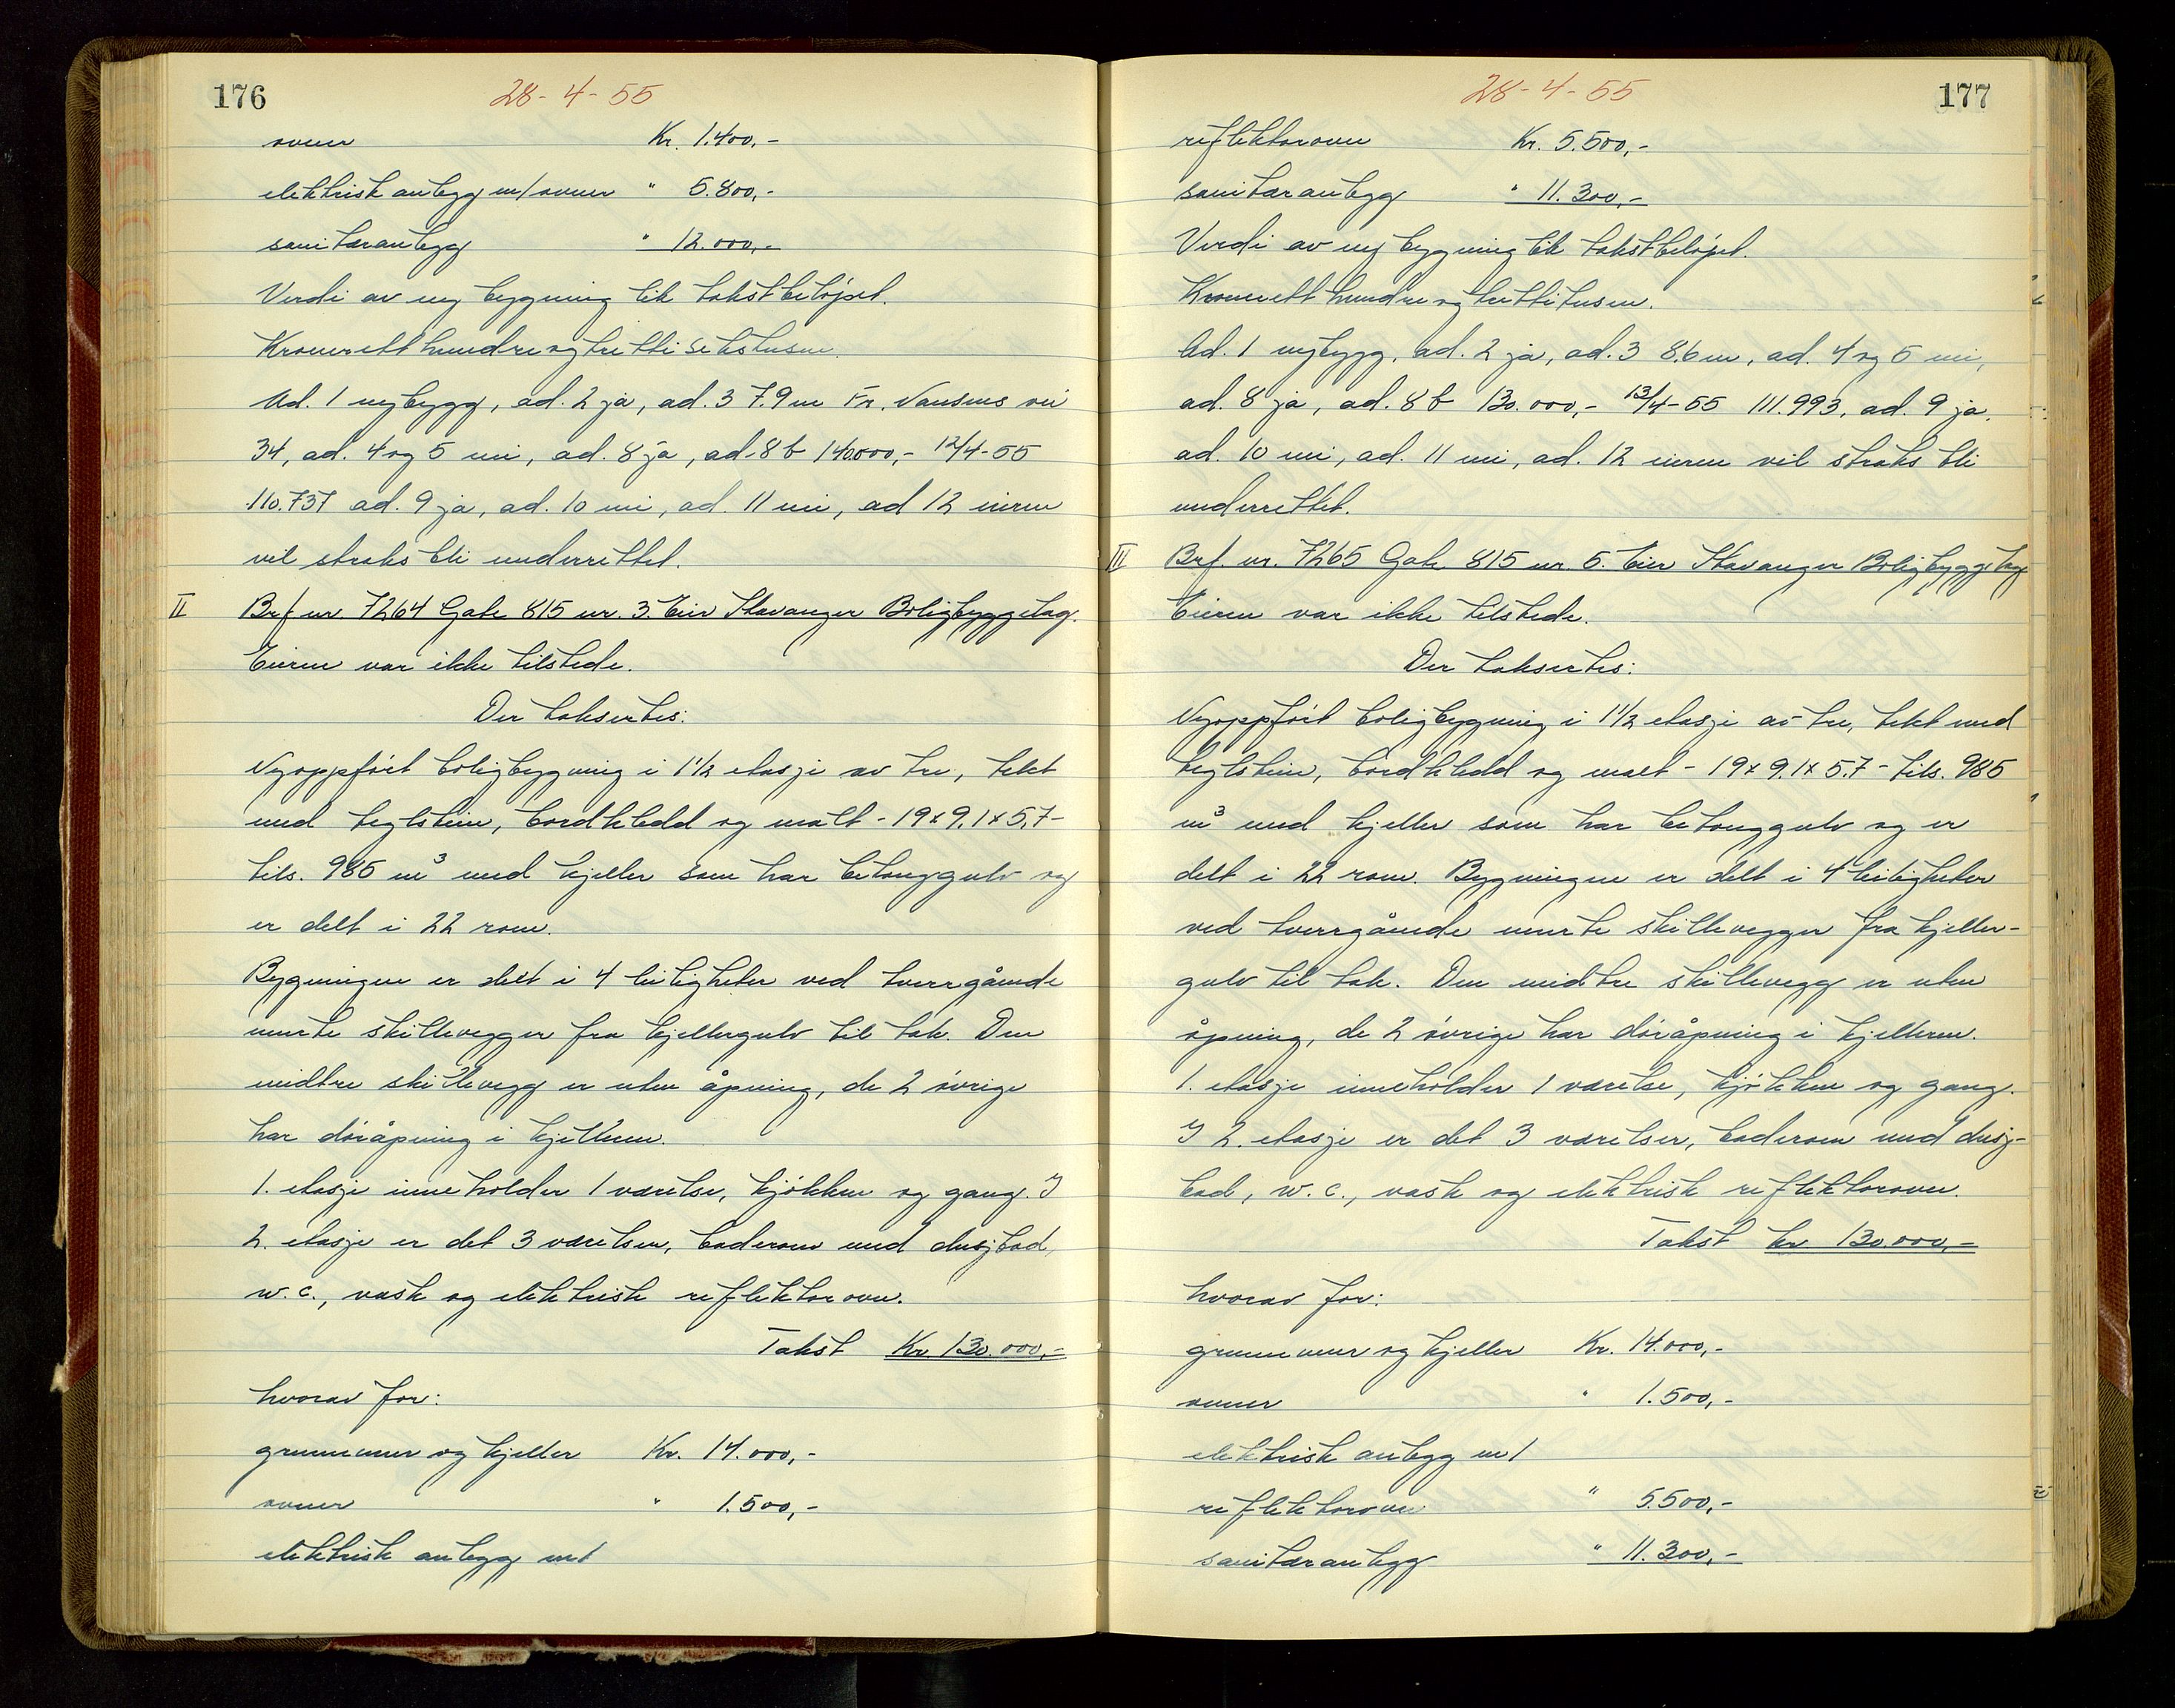 176
28-4-55
ovner Kr. 1.400,-
elektrisk anlegg m/ovner " 5.800,-
sanitæranlegg " 12.000,-
Verdi av ny bygning lik takstbeløpet.
Kroneretthundreogtrettisekstusen.
Ad. 1 nybygg, ad. 2 ja, ad. 3 7.9 m Fr. Nansens vei
34, ad. 4 og 5 nei, ad. 8 ja, ad. 8 b 140.000,- 12/4-55
110.737 ad. 9 ja, ad. 10 nei, ad. 11 nei, ad 12 eieren
vil straks bli underrettet.
II Brf. nr. 7264 Gate 815 nr. 3. Eier Stavanger Boligbyggelag.
Eieren var ikke tilstede.
Der taksertes:
Nyoppført boligbygning i 1 1/2 etasje av tre, tekt
med teglstein, bordkledd og malt - 19 x 9,1 x 5,7 -
tils. 985 m³ med kjeller som har betonggulv og
er delt i 22 rom.
Bygningen er delt i 4 leiligheter ved tverrgående
murte skillevegger fra kjellergulv til tak. Den
midtre skillevegg er uten åpning, de 2 øvrige
har døråpning i kjelleren.
1. etasje inneholder 1 værelse, kjøkken og gang. I
2. etasje er det 3 værelser, baderom med dusjbad,
w.c., vask og elektrisk reflektorovn.
Takst Kr. 130.000,-
hvorav for:
grunnmur og kjeller Kr. 14.000,-
ovner " 1.500,-
elektrisk anlegg m/
28-4-55
177
reflektorovn Kr. 5.500,-
sanitæranlegg " 11.300,-
Verdi av ny bygning lik takstbeløpet.
Kroneretthundreogtrettitusen.
Ad. 1 nybygg, ad. 2 ja, ad. 3 8.6 m, ad. 4 og 5 nei,
ad. 8 ja, ad. 8 b 130.000,- 13/4-55 111.993, ad. 9 ja,
ad. 10 nei, ad. 11 nei, ad. 12 eieren vil straks bli
underrettet.
III Brf. nr. 7265 Gate 815 nr. 5. Eier Stavanger Boligbyggelag
Eieren var ikke tilstede.
Der taksertes:
Nyoppført boligbygning i 1 1/2 etasje av tre, tekt med
teglstein, bordkledd og malt - 19 x 9.1 x 5.7 - tils. 985
m³ med kjeller som har betonggulv og er
delt i 22 rom. Bygningen er delt i 4 leiligheter
ved tverrgående murte skillevegger fra kjeller-
gulv til tak. Den midtre skillevegg er uten
åpning, de 2 øvrige har døråpning i kjelleren.
1. etasje inneholder 1 værelse, kjøkken og gang.
I 2. etasje er det 3 værelser, baderom med dusj-
bad, w.c., vask og elektrisk reflektorovn.
Takst kr 130.000,-
hvorav for:
grunnmur og kjeller Kr. 14.000,-
ovner " 1.500,-
elektrisk anlegg m/
reflektorovn " 5.500,-
sanitæranlegg " 11.300,-